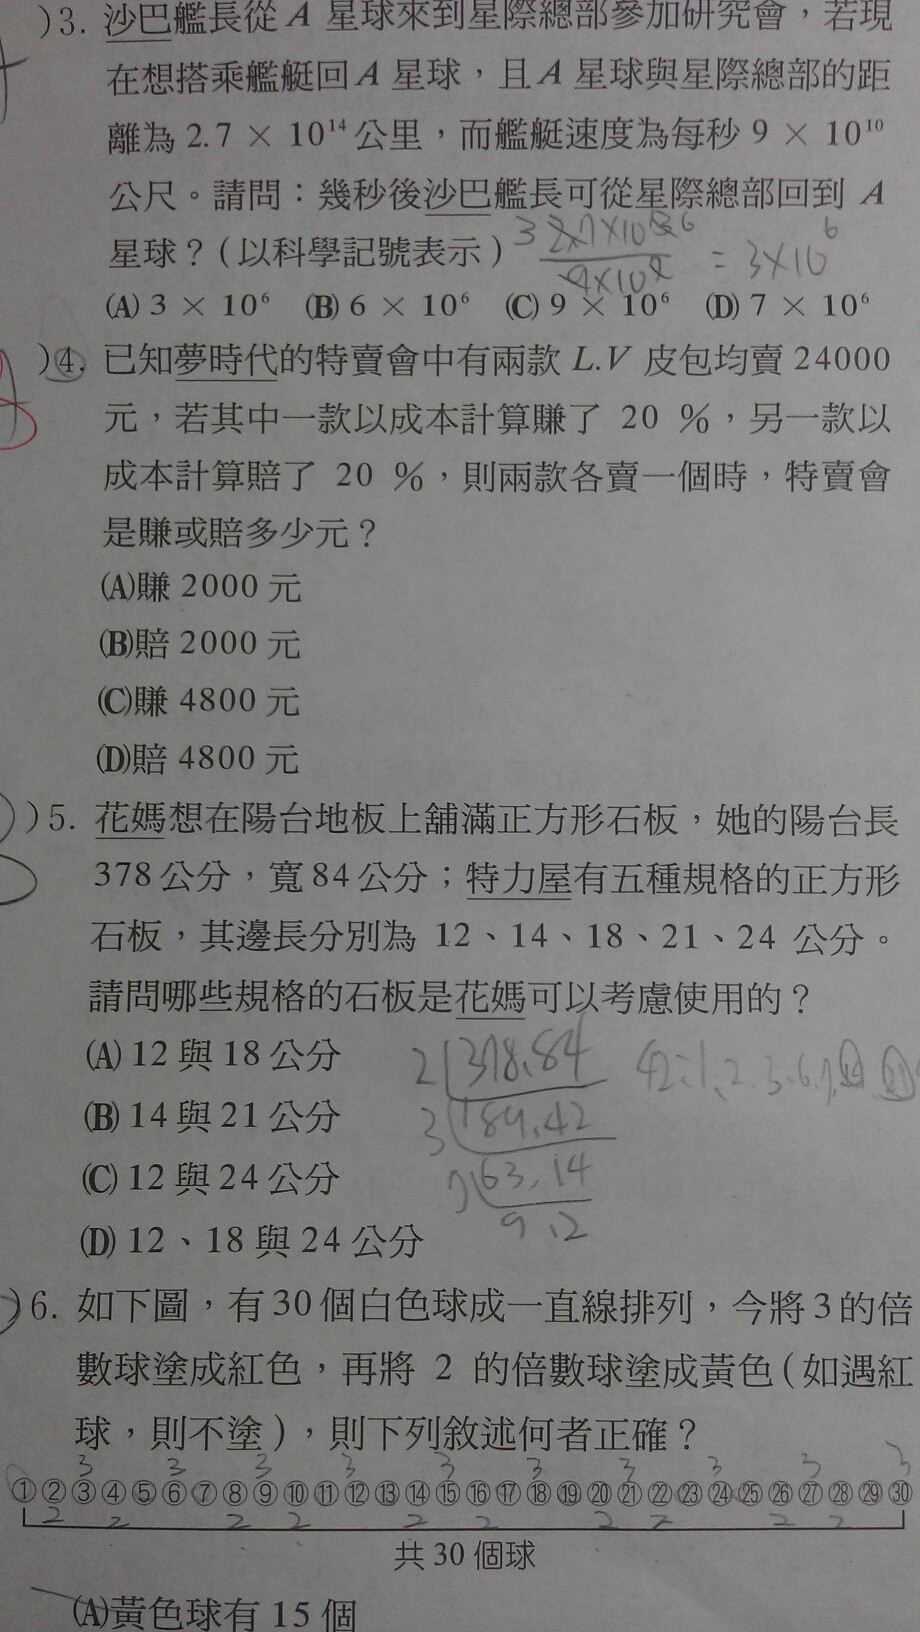 )3. 沙巴艦長從 A 星球來到星際總部參加研究會，若現
在想搭乘艦艇回 A 星球，且 A 星球與星際總部的距
離為 2.7 × 10¹⁴ 公里，而艦艇速度為每秒 9 × 10¹⁰
公尺。請問：幾秒後沙巴艦長可從星際總部回到 A
星球？(以科學記號表示)
= 3×10⁶
(A) 3 × 10⁶ (B) 6 × 10⁶ (C) 9 × 10⁶ (D) 7 × 10⁶
)4. 已知夢時代的特賣會中有兩款 L.V 皮包均賣 24000
元，若其中一款以成本計算賺了 20 %，另一款以
成本計算賠了 20 %，則兩款各賣一個時，特賣會
是賺或賠多少元？
(A)賺 2000 元
(B)賠 2000 元
(C)賺 4800 元
(D)賠 4800 元
)5. 花媽想在陽台地板上舖滿正方形石板，她的陽台長
378公分，寬84公分；特力屋有五種規格的正方形
石板，其邊長分別為 12、14、18、21、24 公分。
請問哪些規格的石板是花媽可以考慮使用的？
(A) 12 與 18 公分
2 378,84
(B) 14 與 21 公分
3 189,42
(C) 12 與 24 公分
7 63,14
9,2
(D) 12、18 與 24 公分
)6. 如下圖，有30個白色球成一直線排列，今將3的倍
數球塗成紅色，再將 2 的倍數球塗成黃色(如遇紅
球，則不塗)，則下列敘述何者正確？
3 3 3 3 3 3 3 3 3 3
①②③④⑤⑥⑦⑧⑨⑩⑪⑫⑬⑭⑮⑯⑰⑱⑲⑳㉑㉒㉓㉔㉕㉖㉗㉘㉙㉚
2 2 2 2 2 2 2 2 2 2
共 30 個球
(A)黃色球有 15 個